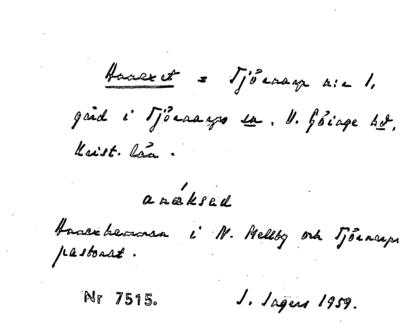 Annexet = Tjörnarp n:r 1,
gård i Tjörnarps sn, V. Göinge hd,
Krist. län.
anäksəd
Annexhemman i N. Mellby och Tjörnarps
pastorat.
Nr 7515. I. Ingers 1959.